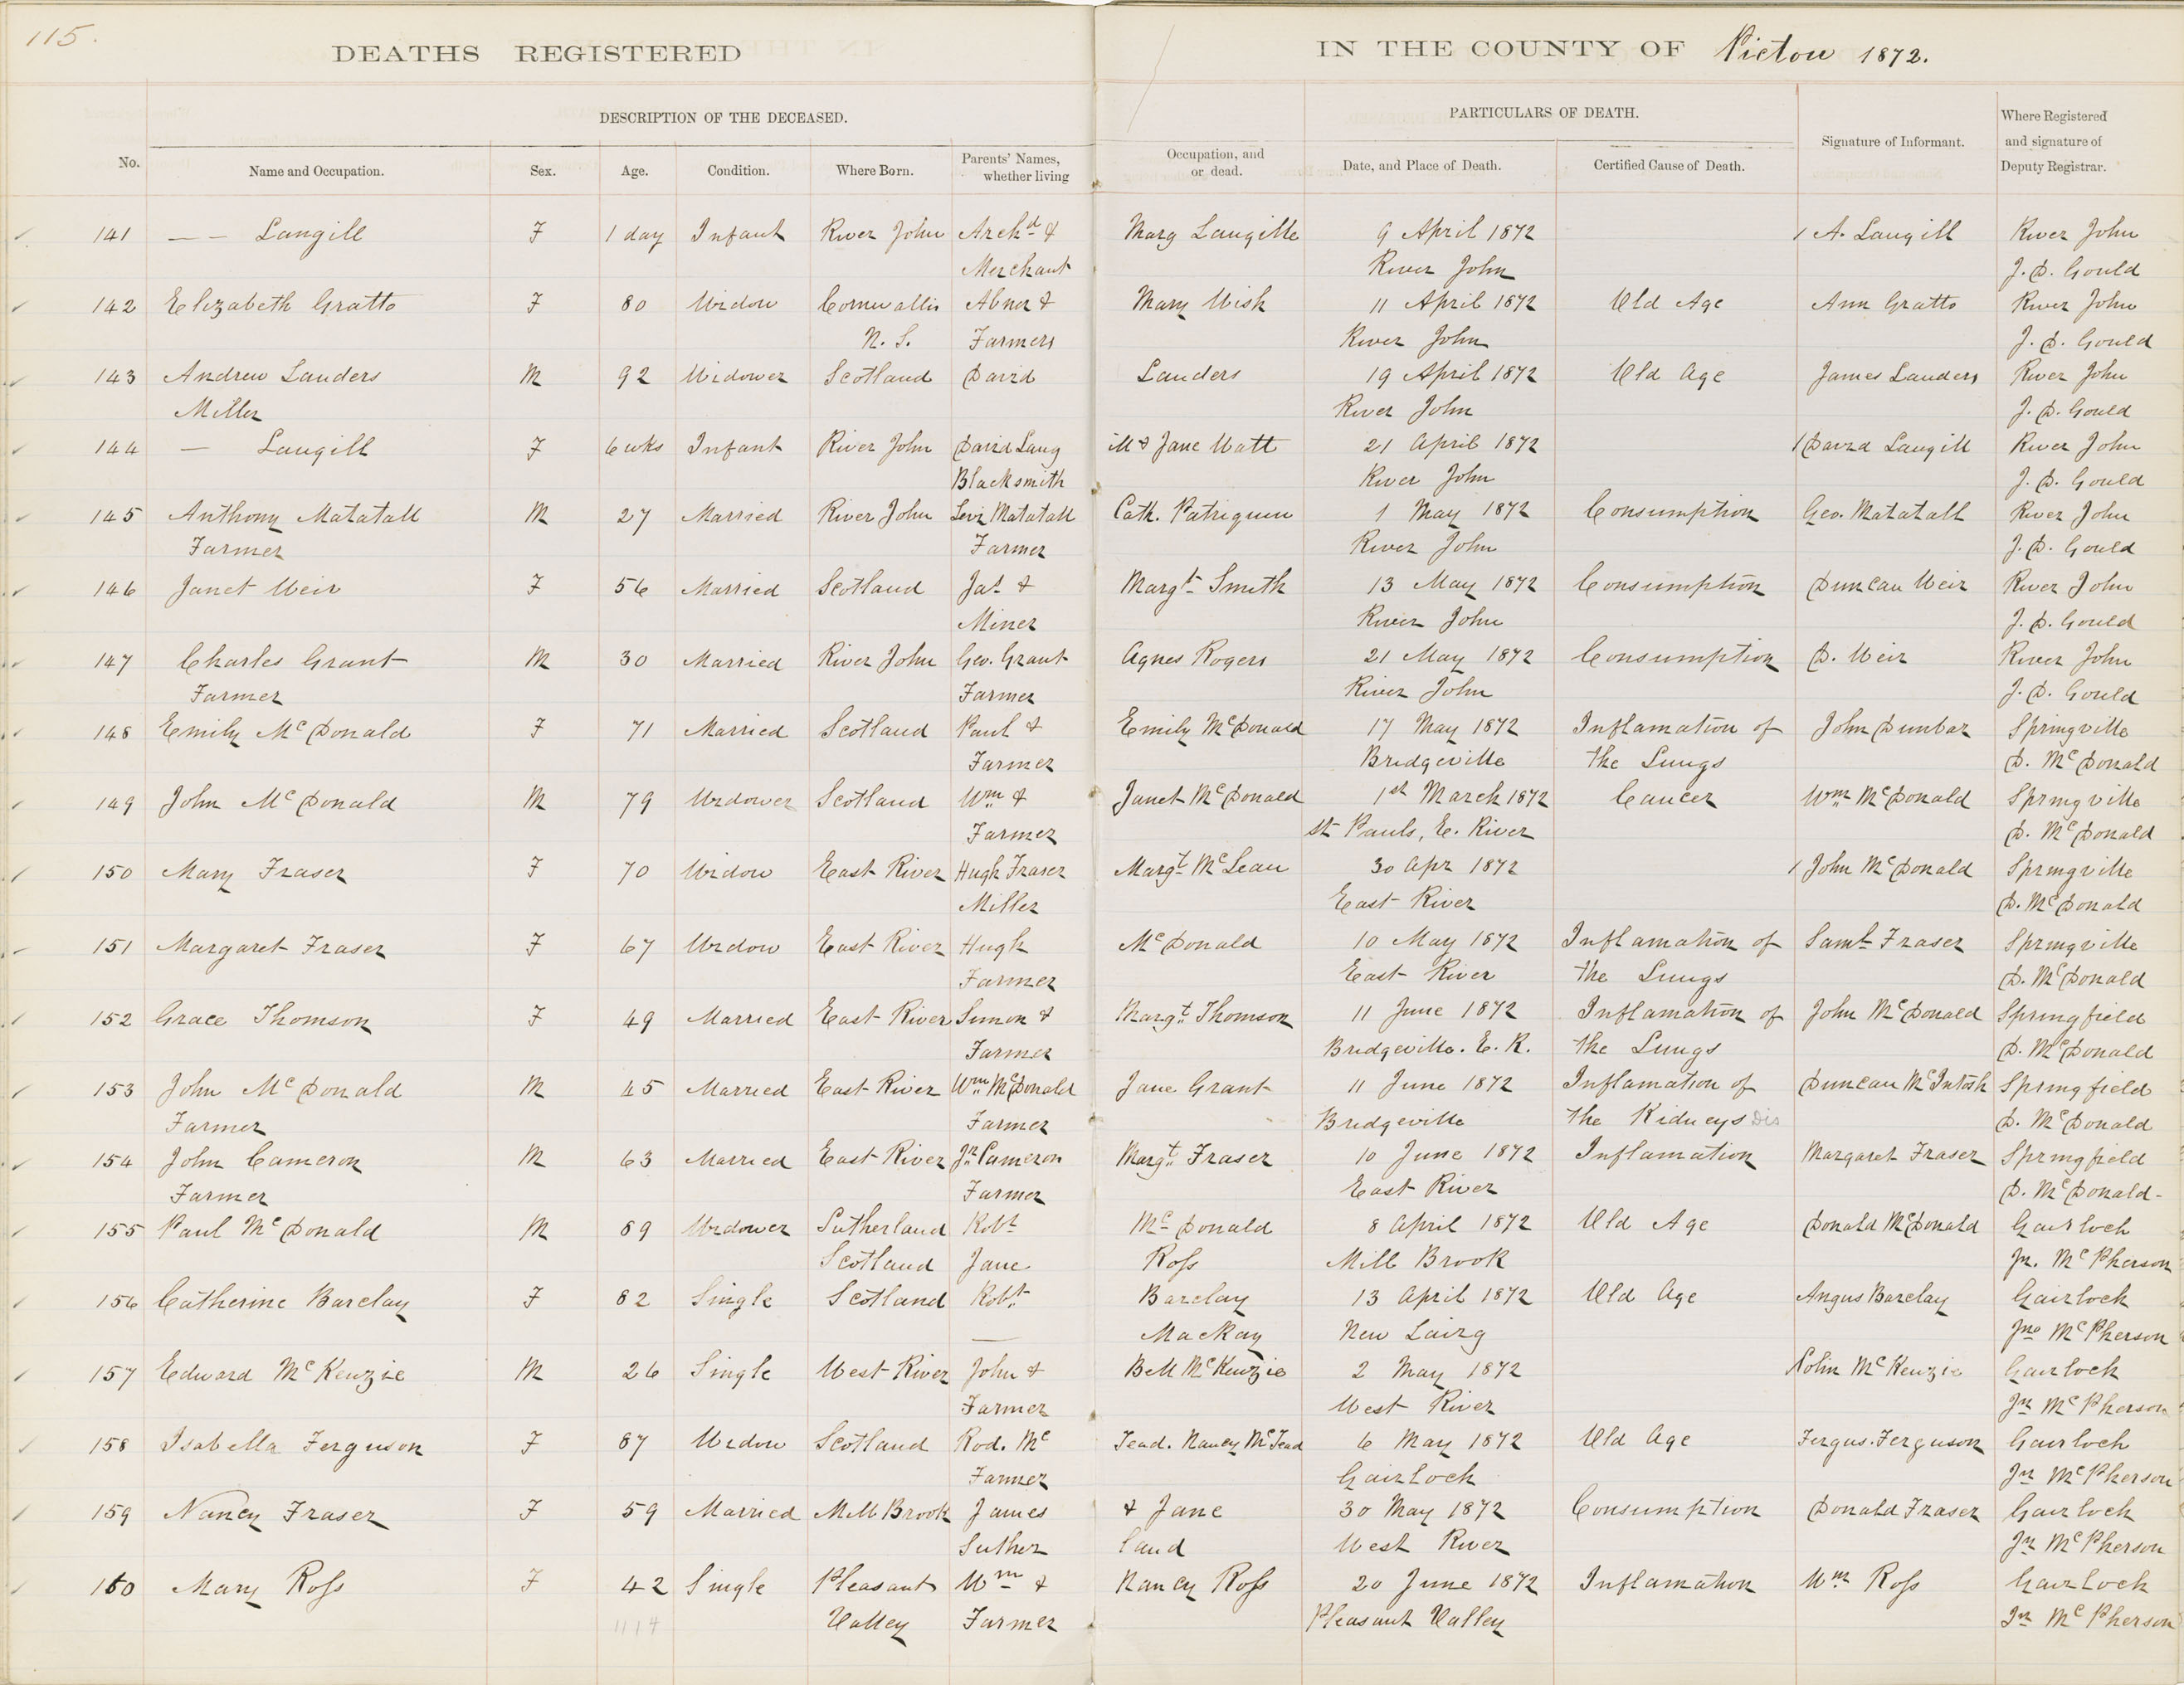 115.
DEATHS REGISTERED IN THE COUNTY OF Pictou 1872.
DESCRIPTION OF THE DECEASED. PARTICULARS OF DEATH.
No. Name and Occupation. Sex. Age. Condition. Where Born. Parents' Names, whether living Occupation, and or dead. Date, and Place of Death. Certified Cause of Death. Signature of Informant. Where Registered and signature of Deputy Registrar.
141 — — Langill F 1 day Infant River John Archd & Marg Langille 9 April 1872 1 A. Langill River John
Merchant River John J. D. Gould
142 Elizabeth Gratto F 80 Widow Cornwallis Abner & Mary Wish 11 April 1872 Old Age Ann Gratto River John
N. S. Farmers River John J. D. Gould
143 Andrew Lauders M 92 Widower Scotland David Lauders 19 April 1872 Old Age James Lauders River John
Miller River John J. D. Gould
144 — Langill F 6 wks Infant River John David Lang ill & Jane Watt 21 April 1872 1 David Langill River John
Blacksmith River John J. D. Gould
145 Anthony Matatall M 27 Married River John Levi Matatall Cath. Patriquin 1 May 1872 Consumption Geo. Matatall River John
Farmer Farmer River John J. D. Gould
146 Janet Weir F 56 Married Scotland Jas & Margt Smith 13 May 1872 Consumption Duncan Weir River John
Miner River John J. D. Gould
147 Charles Grant M 30 Married River John Geo. Grant Agnes Rogers 21 May 1872 Consumption D. Weir River John
Farmer Farmer River John J. D. Gould
148 Emily McDonald F 71 Married Scotland Paul & Emily McDonald 17 May 1872 Inflamation of John Dunbar Springville
Farmer Bridgeville the Lungs D. McDonald
149 John McDonald M 79 Widower Scotland Wm & Janet McDonald 1st March 1872 Cancer Wm McDonald Springville
Farmer St Pauls, E. River D. McDonald
150 Mary Fraser F 70 Widow East River Hugh Fraser Margt McLean 30 Apr 1872 1 John McDonald Springville
Miller East River D. McDonald
151 Margaret Fraser F 67 Widow East River Hugh McDonald 10 May 1872 Inflamation of Saml Fraser Springville
Farmer East River the Lungs D. McDonald
152 Grace Thomson F 49 Married East River Simon & Margt Thomson 11 June 1872 Inflamation of John McDonald Springfield
Farmer Bridgeville. E. R. the Lungs D. McDonald
153 John McDonald M 45 Married East River Wm McDonald Jane Grant 11 June 1872 Inflamation of Duncan McIntosh Springfield
Farmer Farmer Bridgeville the Kidneys Dis D. McDonald
154 John Cameron M 63 Married East River Jn Cameron Margt Fraser 10 June 1872 Inflamation Margaret Fraser Springfield
Farmer Farmer East River D. McDonald -
155 Paul McDonald M 89 Widower Sutherland Robt McDonald 8 April 1872 Old Age Donald McDonald Gairloch
Scotland Jane Ross Mill Brook Jn. McPherson
156 Catherine Barclay F 82 Single Scotland Robt Barclay 13 April 1872 Old Age Angus Barclay Gairlock
— MacKay New Lairg Jno McPherson
157 Edward McKenzie M 26 Single West River John & Bell McKenzie 2 May 1872 John McKenzie Gairlock
Farmer West River Jn McPherson
158 Isabella Ferguson F 87 Widow Scotland Rod. Mc Lead. Nancy McLead 6 May 1872 Old Age Fergus. Ferguson Gairloch
Farmer Gairloch Jn McPherson
159 Nancy Fraser F 59 Married Mill Brook James & Jane 30 May 1872 Consumption Donald Fraser Gairlock
Suther land West River Jn McPherson
160 Mary Ross F 42 Single Pleasant Wm & Nancy Ross 20 June 1872 Inflamation Wm Ross Gairlock
1114 Valley Farmer Pleasant Valley Jn McPherson